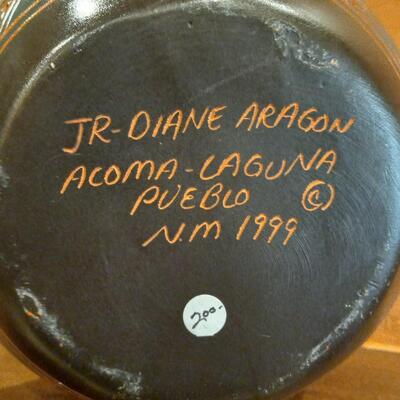 JR-DIANE ARAGON
ACOMA-LAGUNA
PUEBLO ©
N.M 1999
200-